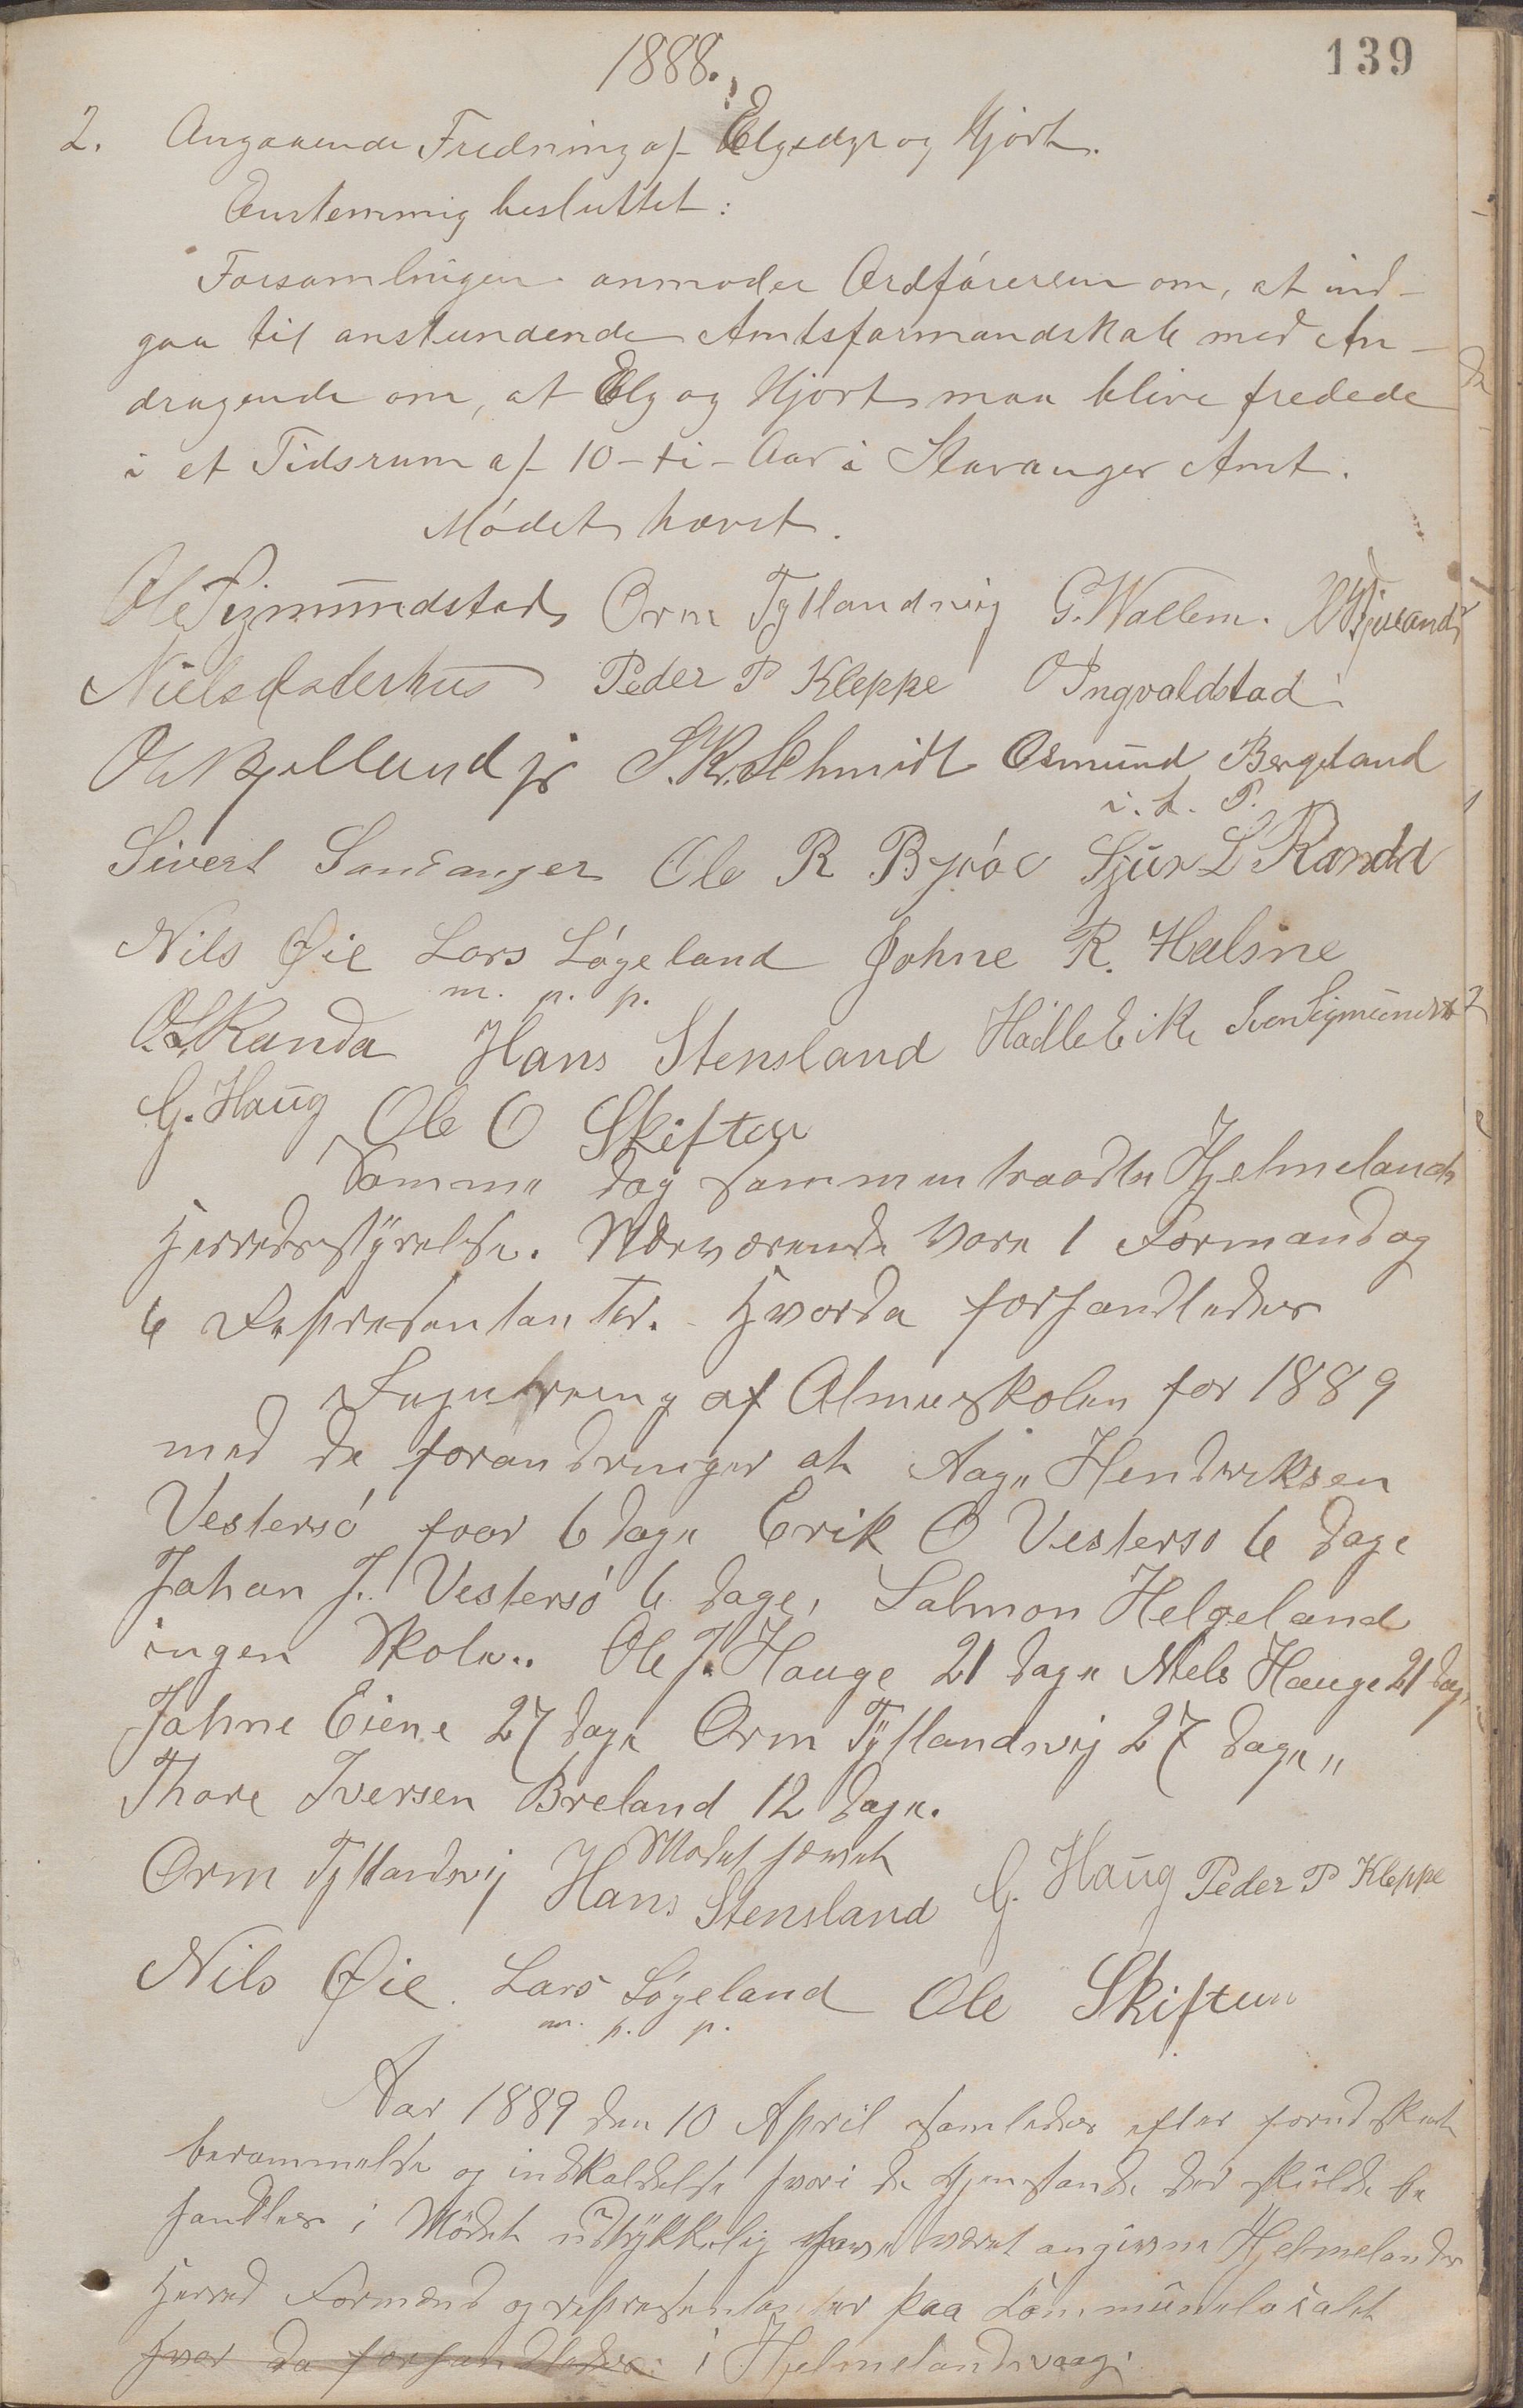 1888.
139
2. Angaaende Fredning af Elgsdyr og Hjort.
Enstemmig besluttet:
Forsamlingen anmoder Ordføreren om, at ind-
gaa til anstundende Amtsformandskab med An-
dragende om, at Elg og Hjort maa blive fredede
i et Tidsrum af 10 - ti - Aar i Stavanger Amt.
Mødet hævet.
Ole Sigmundstad Orm Tytlandsvig G. Wallem.
Niels Peder P Kleppe O Ingvaldstad
O Kjølleund jr S. Kr. Schmidt Osmund Bergeland
i. L. P.
Sivert Sandanger Ole R Byröe Sjur L Randa
Nils Øie Lars Løgeland Johne R. Halsne
m. p. p.
O. L. Randa Hans Stensland Hadle Eike Iven Sigmundst
G. Haug Ole O Skiftun
Samme Dag sammentraadte Hjelmelands
Herredsstyrelse. Nærværende vare 1 Formand og
6 Repræsentanter. Hvorda forhandledes
Regulering af Almueskolen for 1889
med de forandringer at Aage Hendriksen
Vestersø faar 6 dage Erik O Vestersø 6 dage
Johan J. Vestersø 6 dage, Salmon Helgeland
ingen Skole. Ole J. Hauge 21 dage Niels Hauge 21 dag
Johne Eiene 27 dage Orm Tytlandsvig 27 dage
Thore Iversen Breland 12 dage.
Mødet hævet
Orm Tytlandsvig Hans Stensland G. Haug Peder P Kleppe
Nils Øie. Lars Løgeland Ole Skiftun
m. p. p.
Aar 1889 den 10 April samledes efter forudskeet
berammelse og indkaldelse hvori de Gjenstande der skulde be
handles i Mødet udtrykkelig have været angivne Hjelmelands
Herreds Formænd og repræsentanter paa Kommunelocalet
hvor da forhandledes i Hjelmelandsvaag.